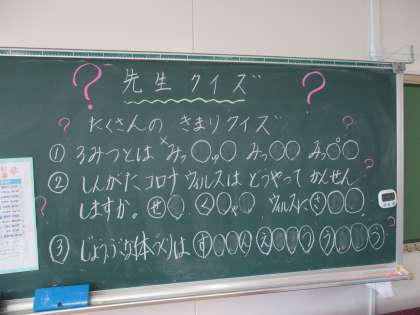 先生クイズ
たくさんの きまりクイズ
① 3みつとは みっ○ぺい みっ○○ みっ○○
② しんがたコロナウィルスは どうやって かんせん
しますか。 せ○ く○ゃ○ ウィルスにさ○○
③ じょうぶな体づくりは す○○んえ○○○つう○○○う